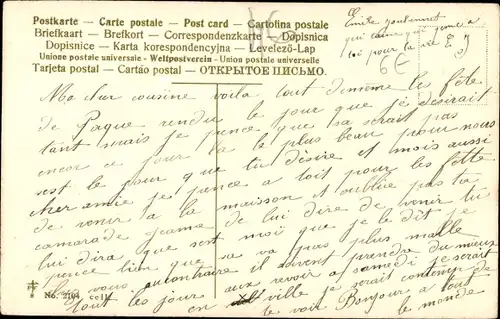 Postkarte — Carte postale — Post card — Cartolina postale
Briefkaart — Brefkort — Correspondenzkarte — Dopisnica
Dopisnice — Karta korespondencyjna — Levelező-Lap
Unione postale universale — Weltpostverein — Union postale universelle
Tarjeta postal — Cartão postal — ОТКРЫТОЕ ПИСЬМО.
Emile
qui t'aime qui pense a
toi pour la vie E J
6€
Ma cher cousine voila tout de meme les fete
de Paque rendu le jour que je désirait
tant mais je pence que sa serait pas
encor ce jour la le plus beau pour nous
sest le jour que tu désire et mois aussi
cher amie je pence a toit pour les fette
de venir a la maisson et oublie pas ta
camarade jeanne de lui dire de venir tu
lui dira que sest moi que je le dit je
pence bien que sa va pas plus malle
le vous au contraire il doivent prendre du mieux
tout les jours aux revoir a samedi je serait
en ville je serait contempt de
le voir Bonjour a tout
le monde
No. 2104